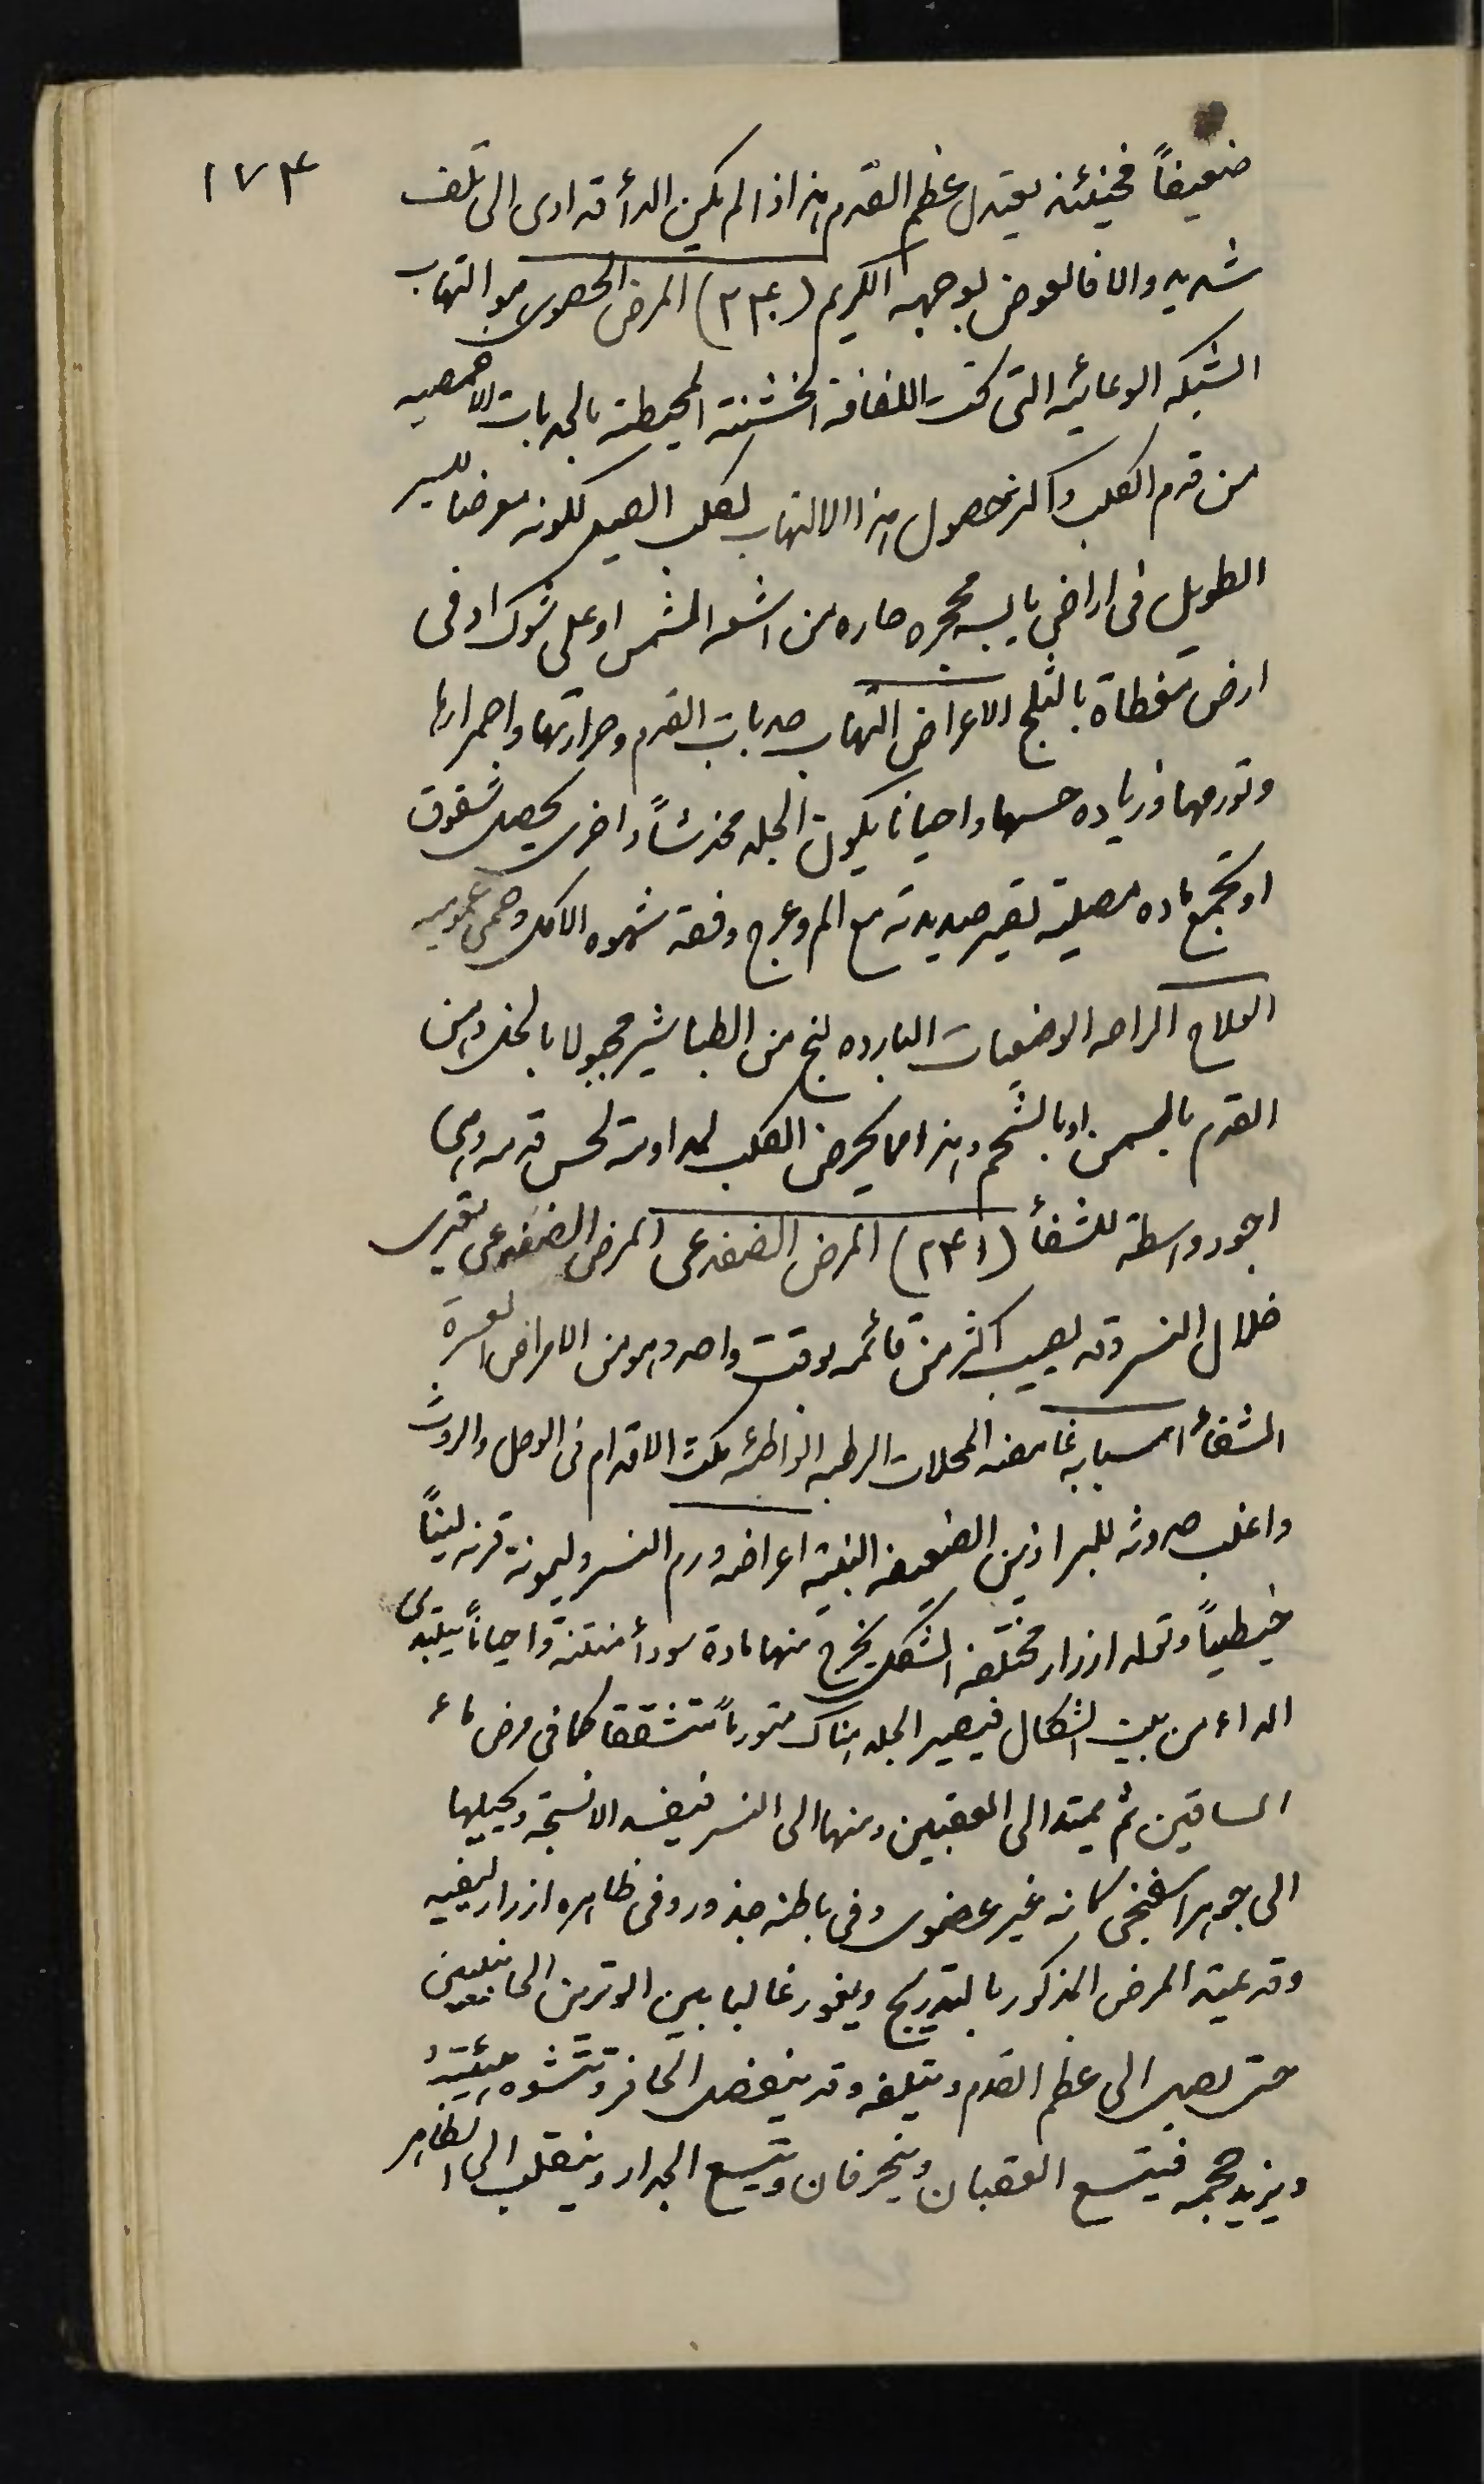 ١٧٤
ضعيفاً فحينئذ يعتدل عظم القدم هذا اذا لم يكن الدأ قد ادى الى تلف
شديد والا فالعوض بوجهه الكريم (٢٤٠) المرض الحصوى هو التهاب
الشبكه الوعائيه التى تحت اللفافة الخشنة المحيطة بالحدبات الاخمصيه
من قدم الكلب واكثر حصول هذا الالتهاب لكلب الصيد لكونه معرضا للسير
الطويل فى اراضى يابسه محجره حاره من اشعه الشمس او على شوك او فى
ارض مغطاة بالثلج الاعراض التهاب حدبات القدم وحرارتها واحمرارها
وتورمها وزياده حسها واحيانا يكون الجلد مخدشاً واخرى يحصل شقوق
او تجمع ماده مصلية تصير صديدية مع الم وعرج وفقد شهوه الاكل وحمى عموميه
العلاج الراحه الوضعيات البارده لبخ من الطباشير مجبولا بالخل دهن
القدم بالسمن او بالشحم وهذا مما يحرض الكلب لمداومة لحس قدمه وهى
اجود واسطة للشفأ (٢٤١) المرض الضفدعى المرض الضفدعى يعترى
خلال النسر وقد يصيب اكثر من قائمه بوقت واحد وهو من الامراض العسرة
الشفأ اسبابه غامضه المحلات الرطبه الواطئه مكث الاقدام فى الوحل والروث
واغلب حدوثه للبراذين الضعيفه البنية اعراضه ورم النسر وليونة قرنه ليناً
خيطياً وتولد ازرار مختلفه الشكل يخرج منها مادة سودأ منتنة واحياناً يبتدى
الداء من بيت الشكال فيصير الجلد هناك متورماً متشققا كما فى مرض ماء
الساقين ثم يمتد الى العقبين ومنها الى النسر فيفسد الانسجة ويحيلها
الى جوهر اسفنجى كانه غير عضوى وفى باطنه جذور وفى ظاهره ازرار ليفيه
وقد يمتد المرض المذكور بالتدريج ويغور غالبا بين الوترين الجانبيين
حتى يصل الى عظم القدم ويتلفه وقد ينفصل الحافر وتتشوه هيئته
ويزيد حجمه فيتسع العقبان وينحرفان ويتسع الجدار وينقلب الى الظاهر